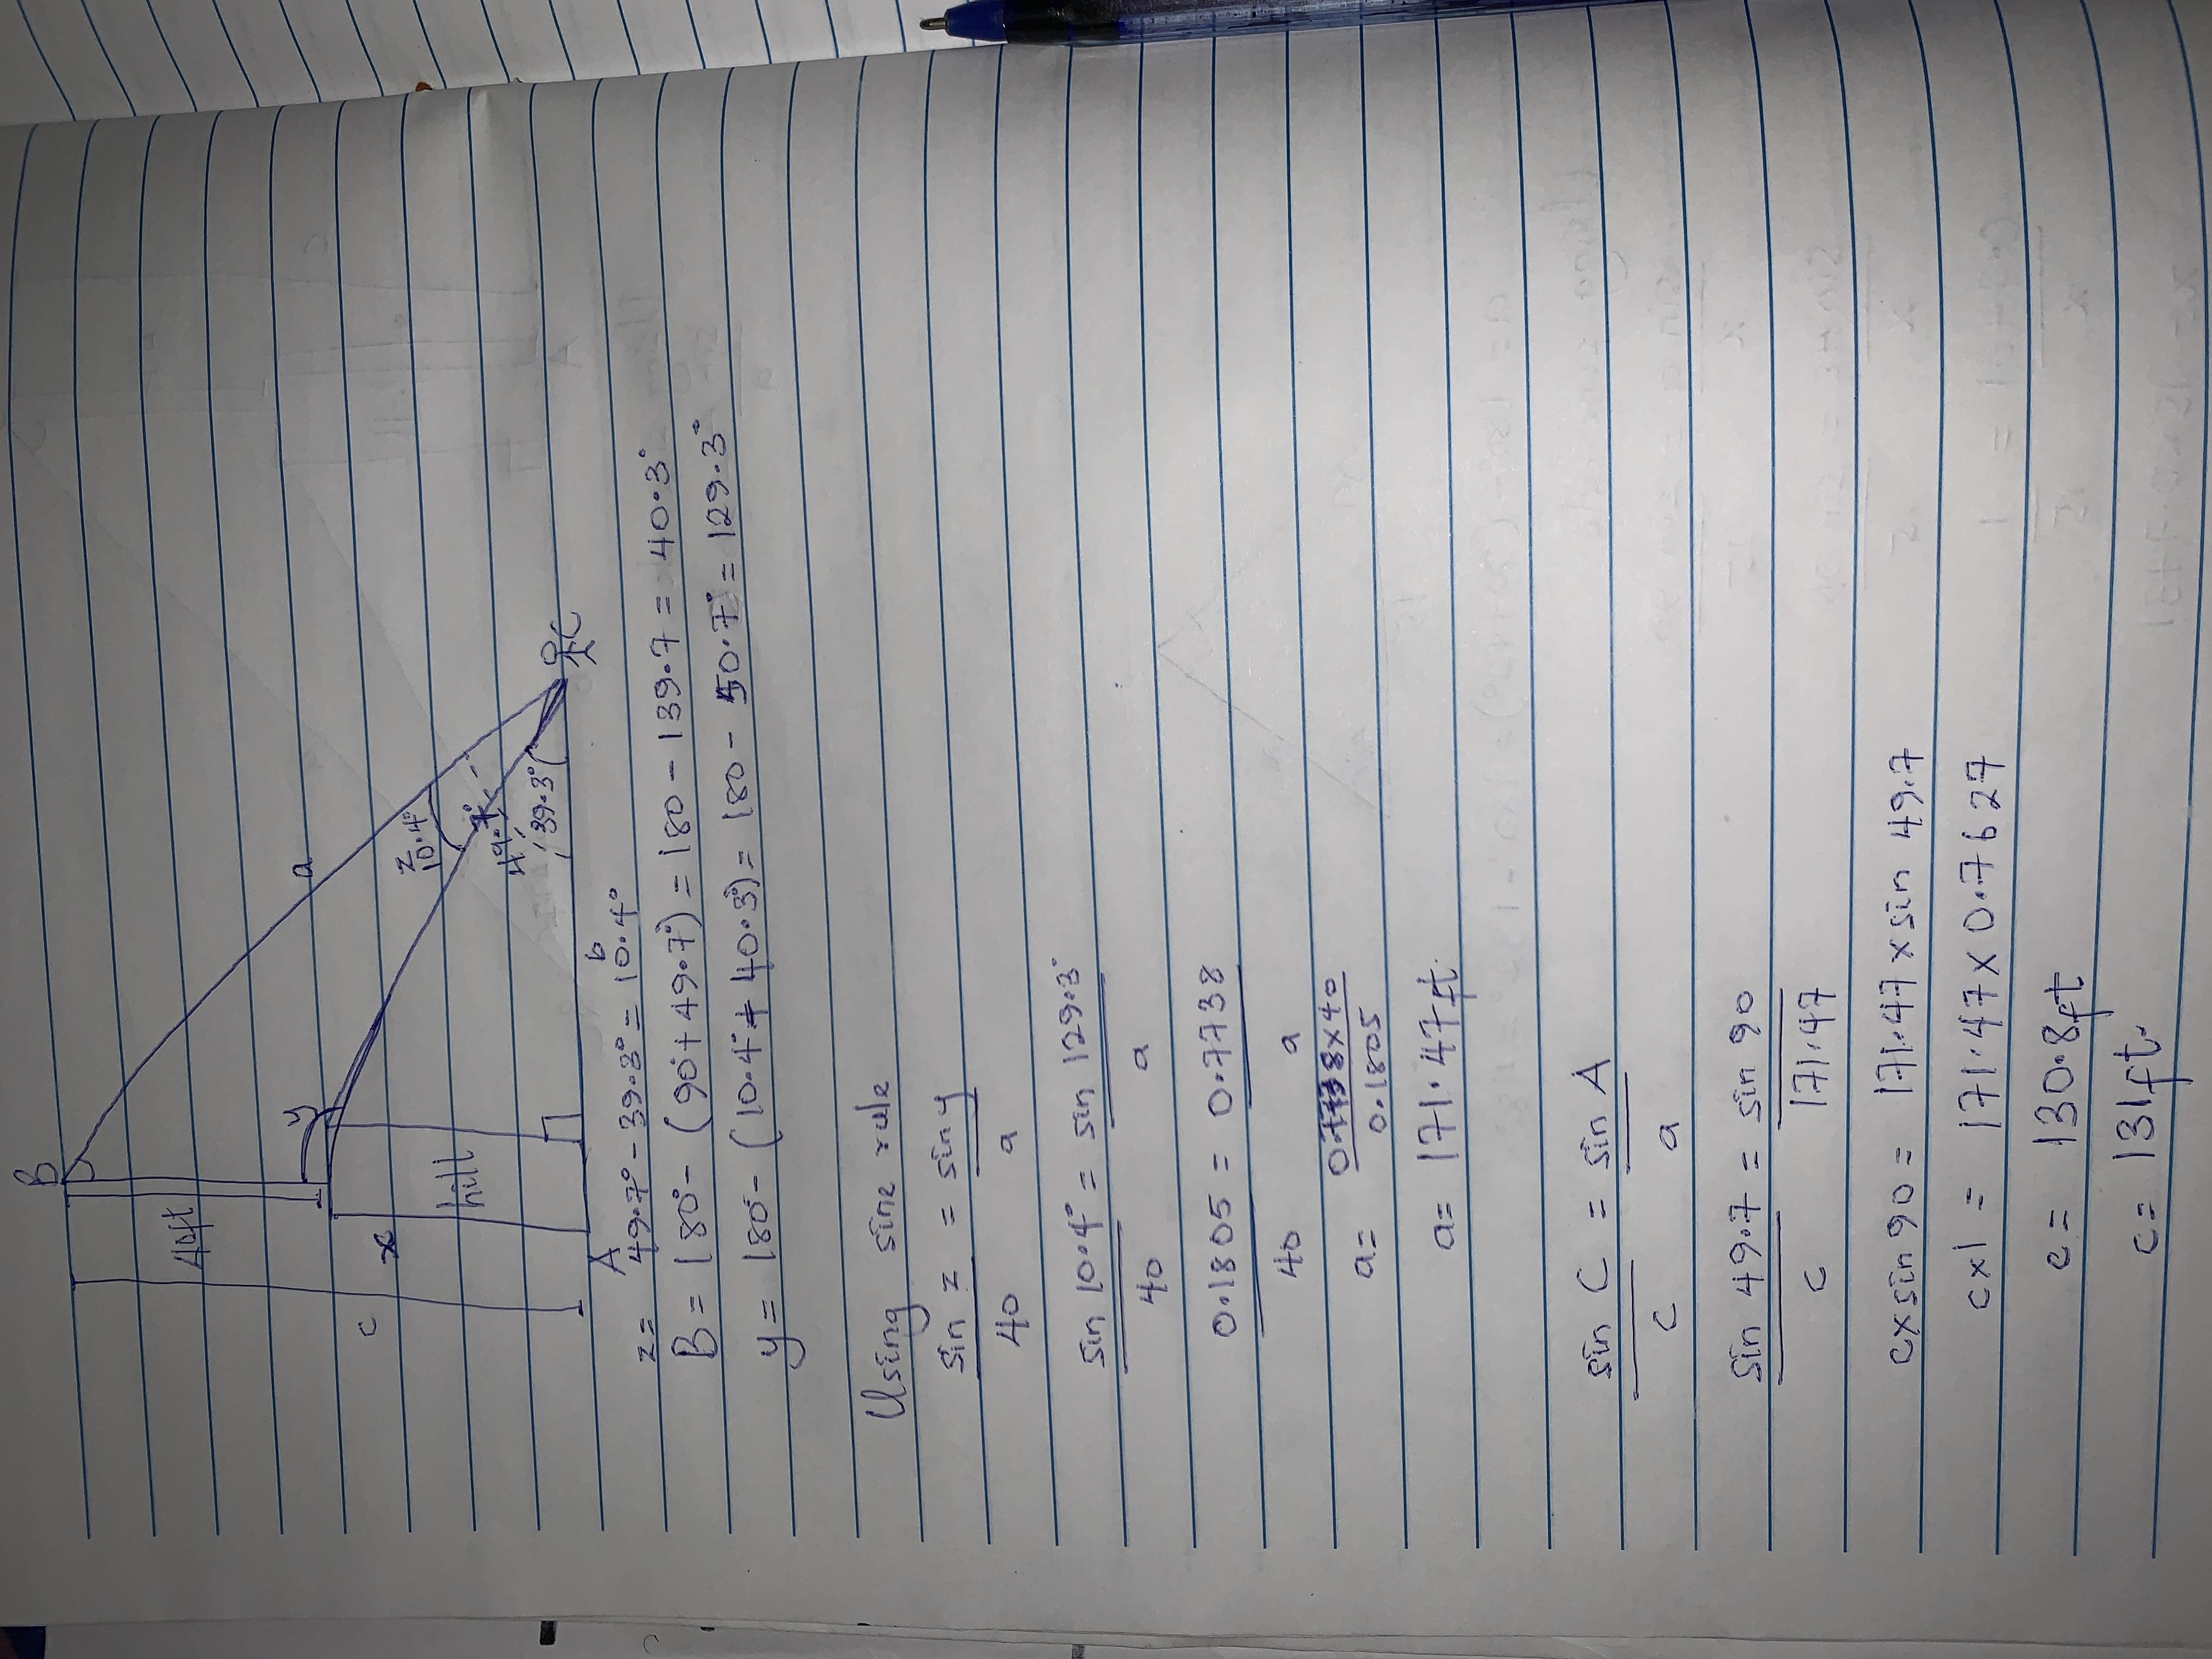 B
40ft
a
y
c
z
10.4°
x
49.7°
hill
39.3°
C
A
b
z = 49.7° - 39.3° = 10.4°
B = 180° - (90° + 49.7°) = 180 - 139.7 = 40.3°
y = 180° - (10.4° + 40.3°) = 180 - 50.7° = 129.3°
Using sine rule
sin z = sin y
40 a
sin 10.4° = sin 129.3°
40 a
0.1805 = 0.7738
40 a
a = 0.7738 x 40
0.1805
a = 171.47ft.
sin C = sin A
c a
sin 49.7 = sin 90
c 171.47
c x sin 90 = 171.47 x sin 49.7
c x 1 = 171.47 x 0.7627
c = 130.8ft
c = 131ft.